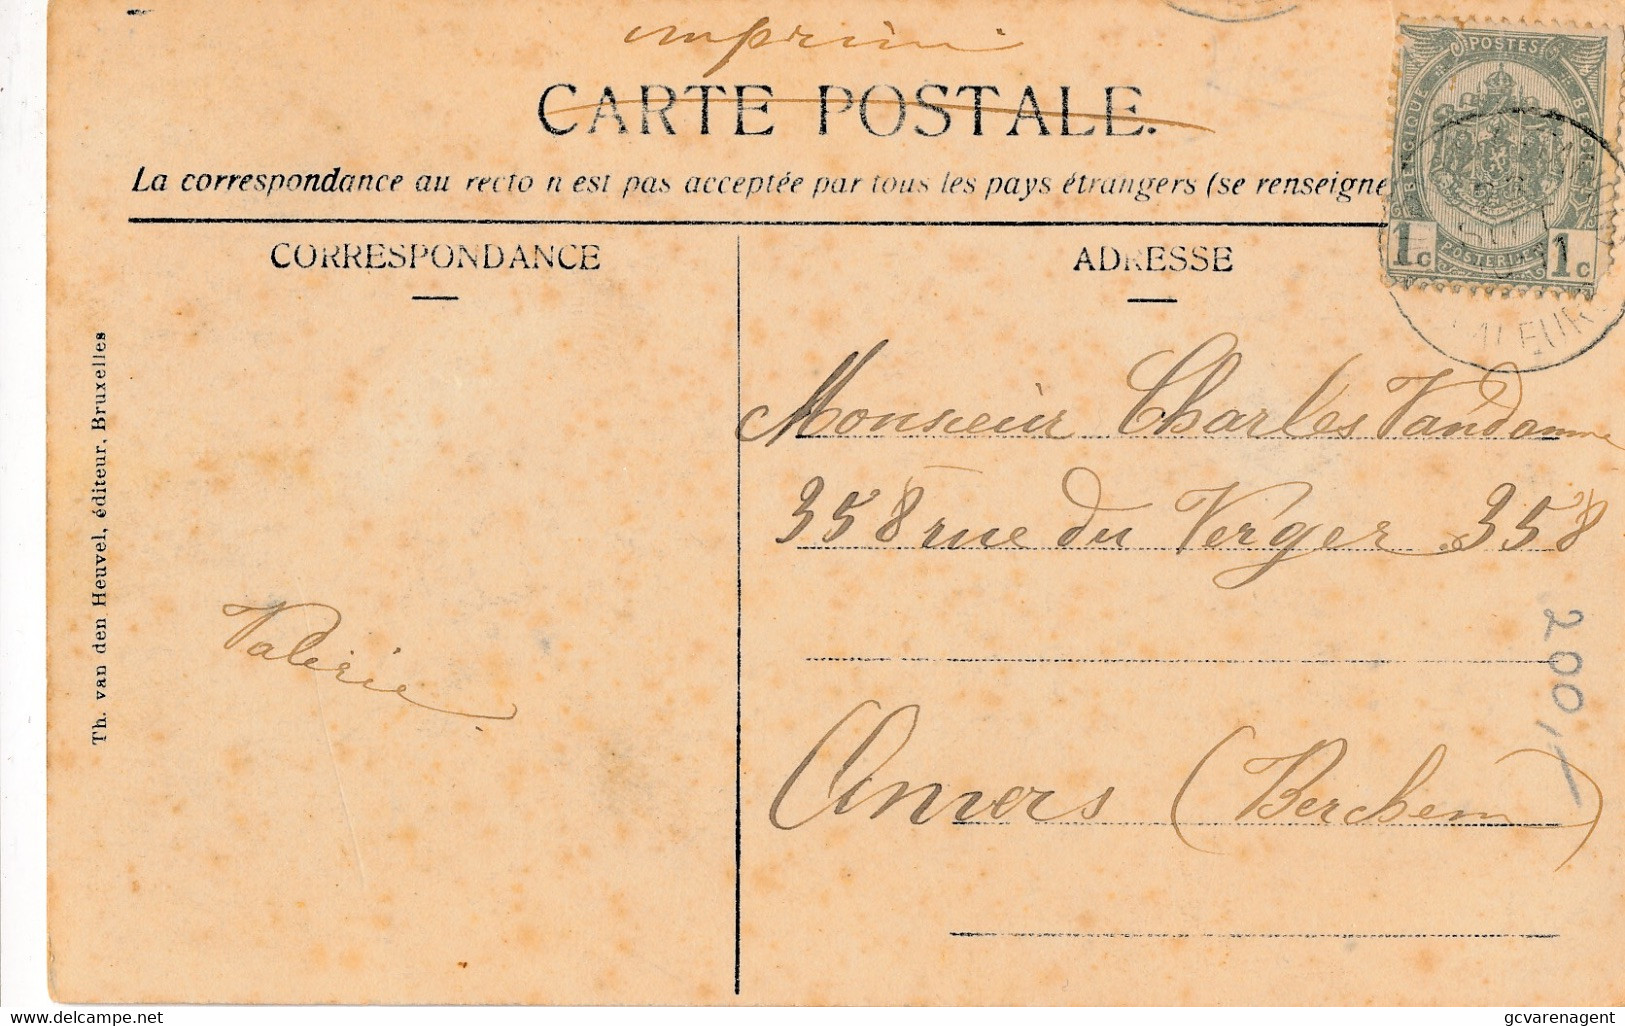 imprimé
CARTE POSTALE.
La correspondance au recto n'est pas acceptée par tous les pays étrangers (se renseigne
POSTES
BELGIQUE
BELGIË
POSTERIJEN
1c
1c
CORRESPONDANCE
ADRESSE
Monsieur Charles Vandamme
358 rue du Verger 358
Anvers (Berchem)
Valérie
Th. van den Heuvel, éditeur, Bruxelles
200,-
delcampe.net
gcvarenagent